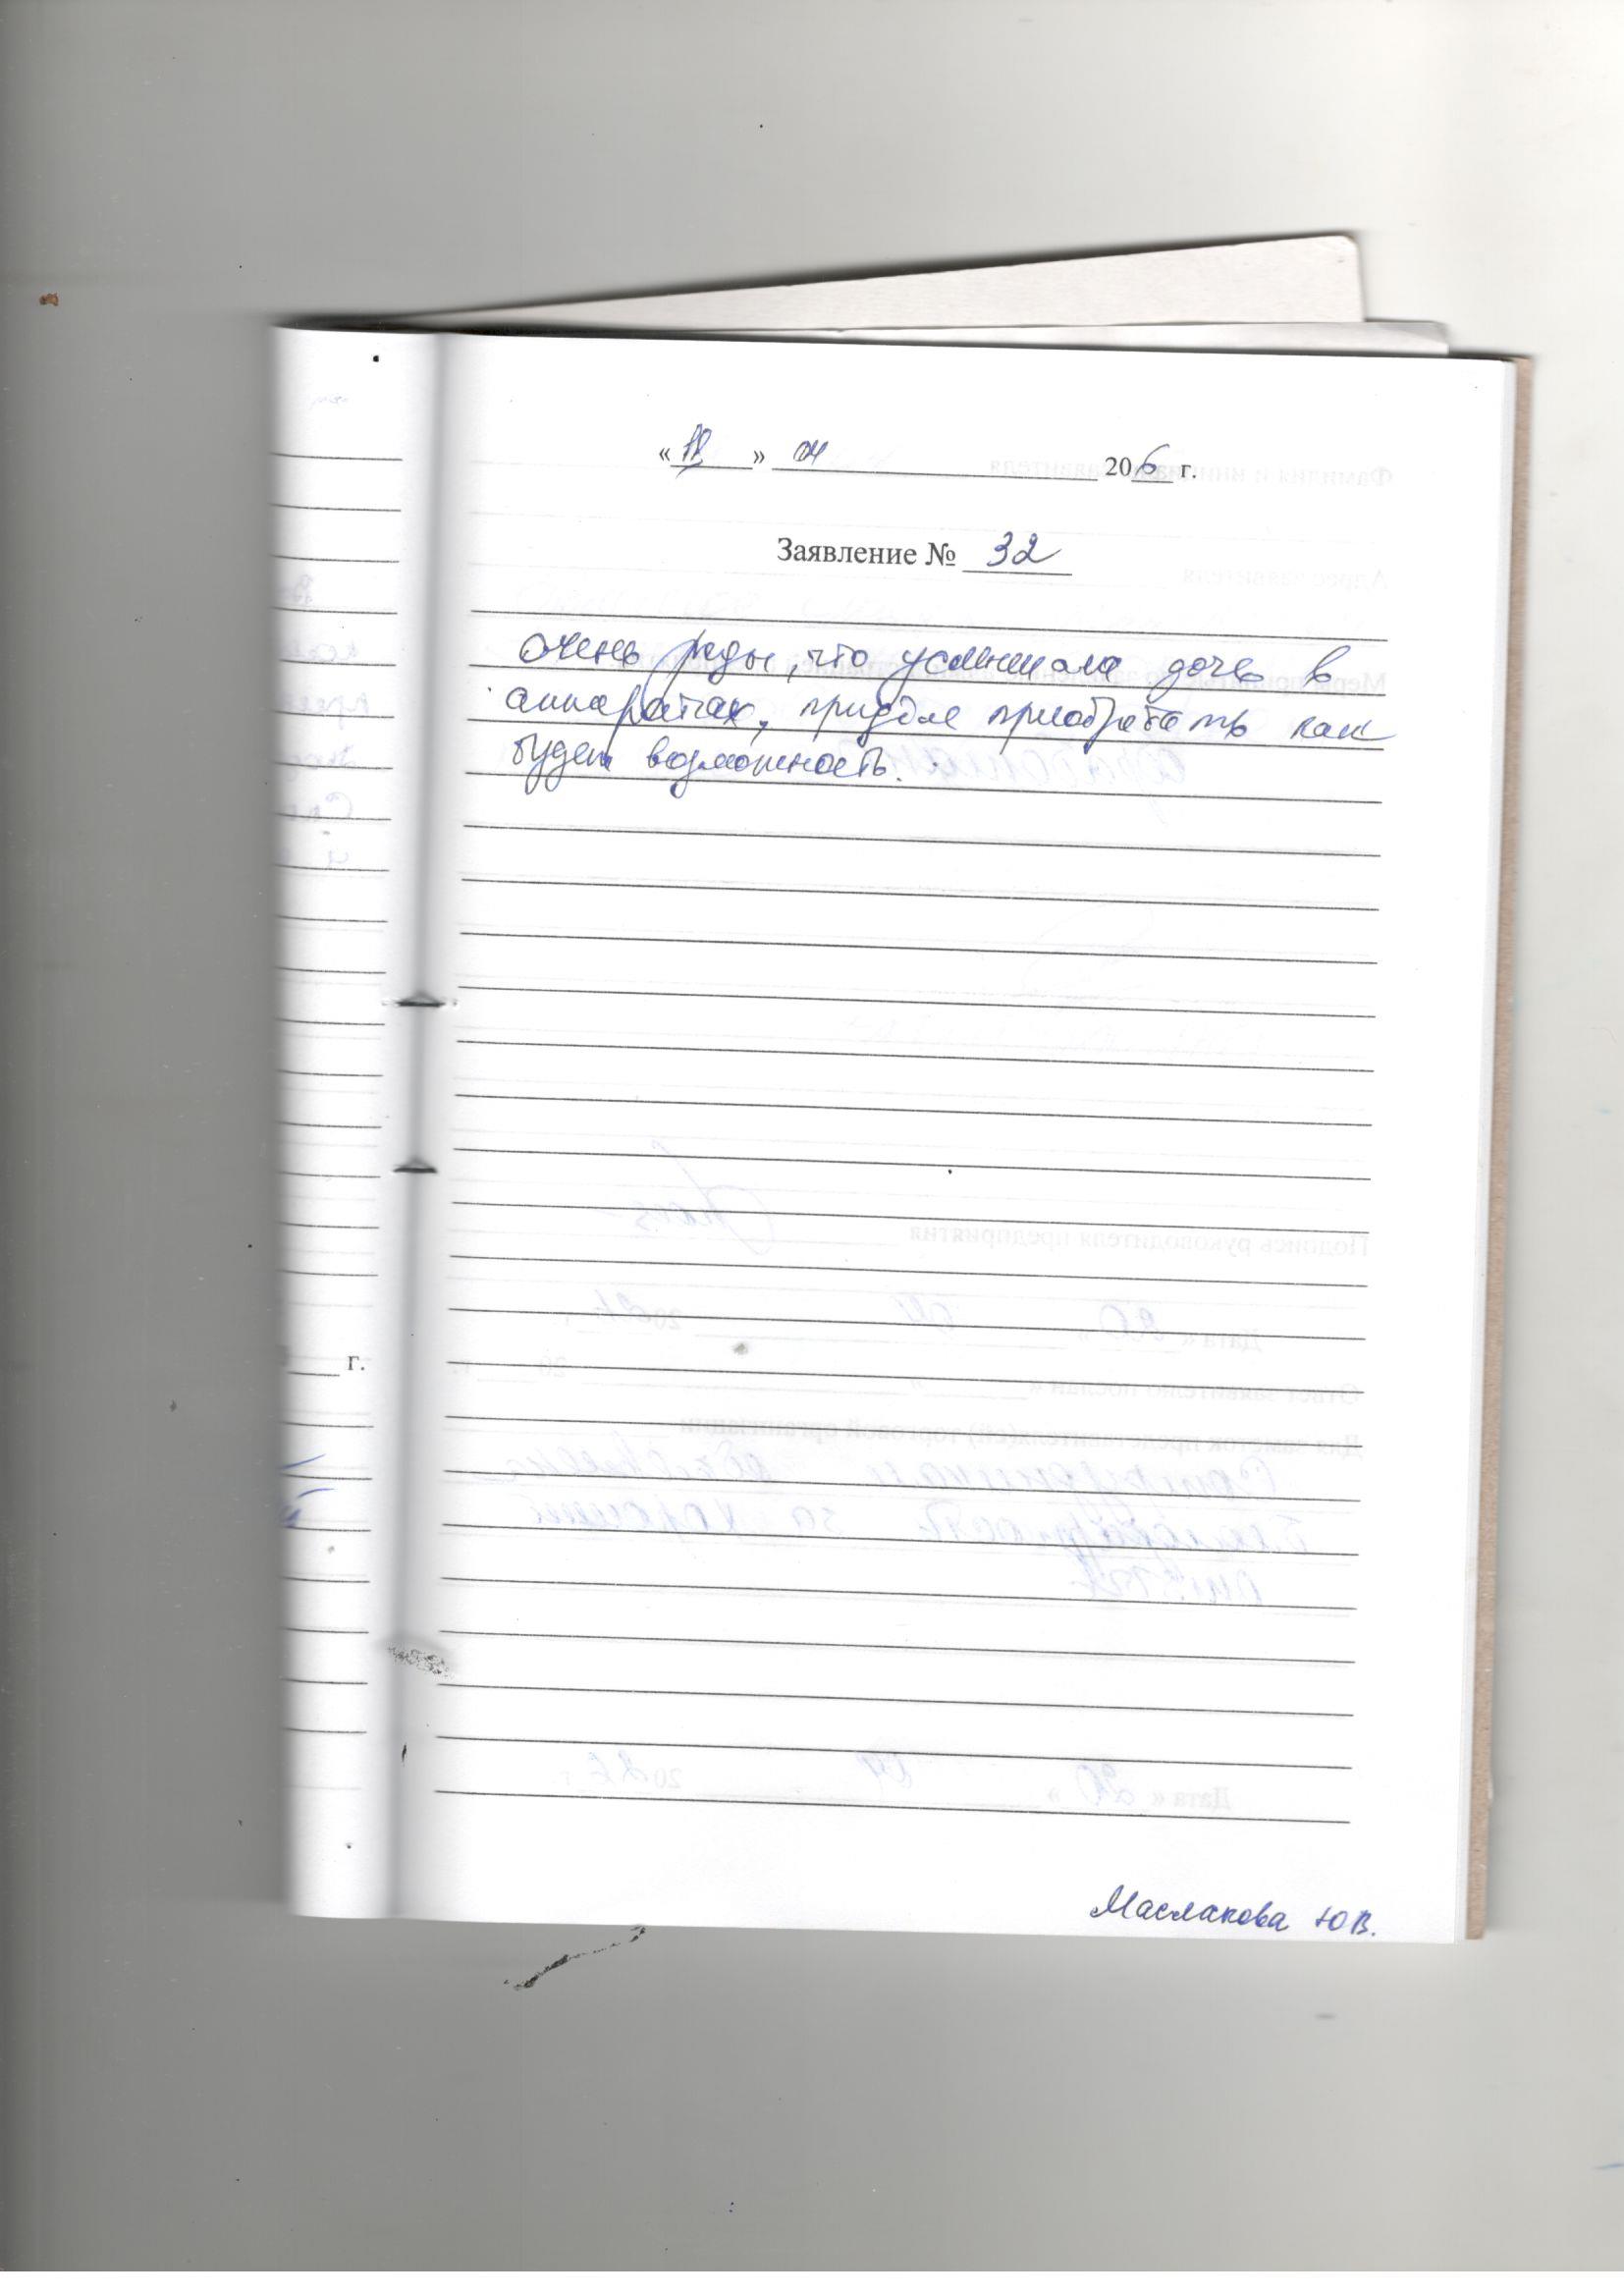 «18» 04 206 г.
Заявление № 32
очень рады, что услышала дочь в
аппаратах, придём приобретать как
будет возможность.
г.
Маслакова Ю.В.